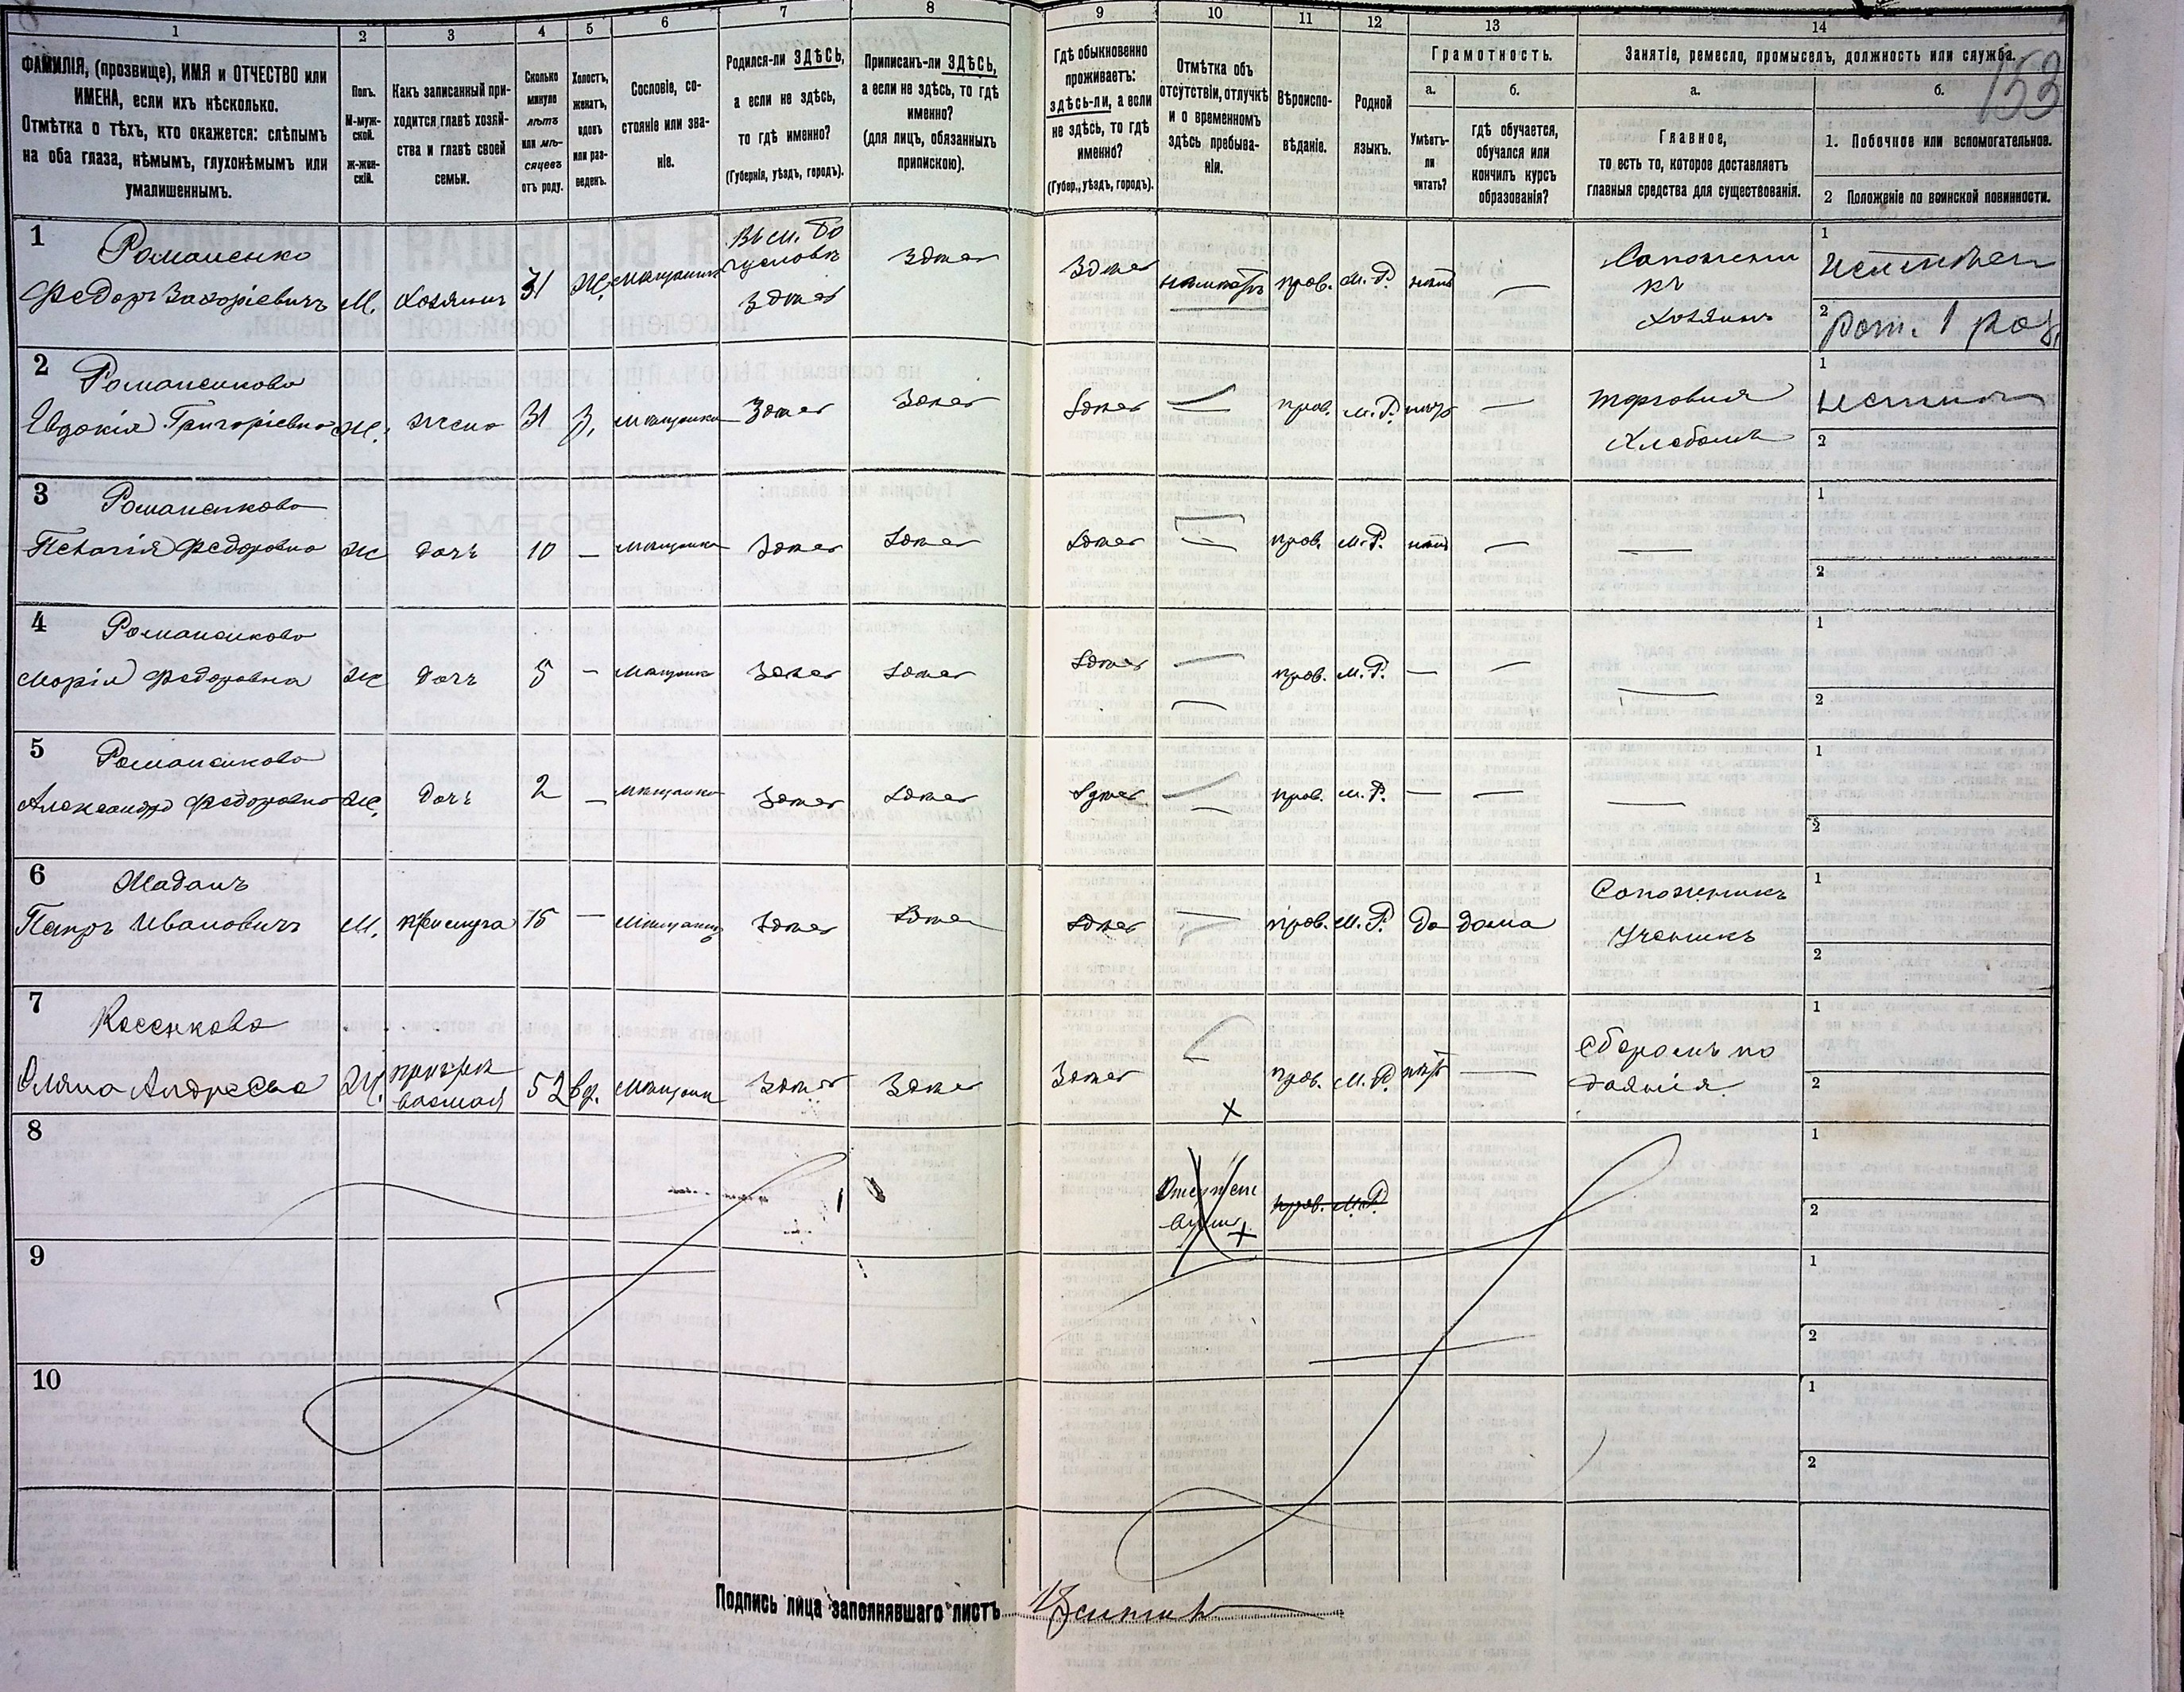 1
2
3
4
5
6
7
8
9
10
11
12
13
14
ФАМИЛІЯ, (прозвище), ИМЯ и ОТЧЕСТВО или
ИМЕНА, если ихъ нѣсколько.
Отмѣтка о тѣхъ, кто окажется: слѣпымъ
на оба глаза, нѣмымъ, глухонѣмымъ или
умалишеннымъ.
Полъ.
М-муж-
ской.
Ж-жен-
скій.
Какъ записанный при-
ходится главѣ хозяй-
ства и главѣ своей
семьи.
Сколько
минуло
лѣтъ
или мѣ-
сяцевъ
отъ роду.
Холостъ,
женатъ,
вдовъ
или раз-
веденъ.
Сословіе, со-
стояніе или зва-
ніе.
Родился-ли ЗДѢСЬ,
а если не здѣсь,
то гдѣ именно?
(Губернія, уѣздъ, городъ).
Приписанъ-ли ЗДѢСЬ,
а если не здѣсь, то гдѣ
именно?
(для лицъ, обязанныхъ
припискою).
Гдѣ обыкновенно
проживаетъ:
здѣсь-ли, а если
не здѣсь, то гдѣ
именно?
(Губер., уѣздъ, городъ).
Отмѣтка объ
отсутствіи, отлучкѣ
и о временномъ
здѣсь пребыва-
ніи.
Вѣроиспо-
вѣданіе.
Родной
языкъ.
Грамотность.
а.
Умѣетъ-
ли
читать?
б.
гдѣ обучается,
обучался или
кончилъ курсъ
образованія?
Занятіе, ремесло, промыселъ, должность или служба.
153
а.
Главное,
то есть то, которое доставляетъ
главныя средства для существованія.
б.
1. Побочное или вспомогательное.
2 Положеніе по воинской повинности.
1 Романенко
Федоръ Захоріевичъ М. Хозяинъ 31 Ж. мѣщанинъ
Здѣсь Здѣсь Здѣсь прав. М. Р. нѣтъ —
Сапожни
къ
Хозяинъ
1
2 рат. 1 раз.
2 Романенкова
Евдокія Григорієвна Ж. жена 31 З. мѣщанка Здѣсь Здѣсь Здѣсь — прав. М. Р. нѣтъ —
торговля
Хлебомъ
1
2
3 Романенкова
Пелагія Федоровна Ж дочь 10 — мѣщанка Здѣсь Здѣсь Здѣсь — прав. М. Р. нѣтъ — —
1
2
4 Романенкова
Марія Федоровна Ж дочь 5 — мѣщанка Здѣсь Здѣсь Здѣсь — прав. М. Р. — — —
1
2
5 Романенкова
Александра Федоровна Ж. дочь 2 — мѣщанка Здѣсь Здѣсь Здѣсь — прав. М. Р. — — —
1
2
6 Маданъ
Петръ Ивановичъ М. прислуга 15 — мѣщанинъ Здѣсь Здѣсь Здѣсь — прав. М. Р. Да дома
Сапожникъ
Ученикъ
1
2
7 Косенкова
Андреева Ж. 52 вд. мѣщанк Здѣсь Здѣсь Здѣсь прав. М. Р. нѣтъ —
Сборомъ по
даянія
1
2
8
прав. М. Р.
1
2
9
1
2
10
1
2
Подпись лица заполнявшаго листъ